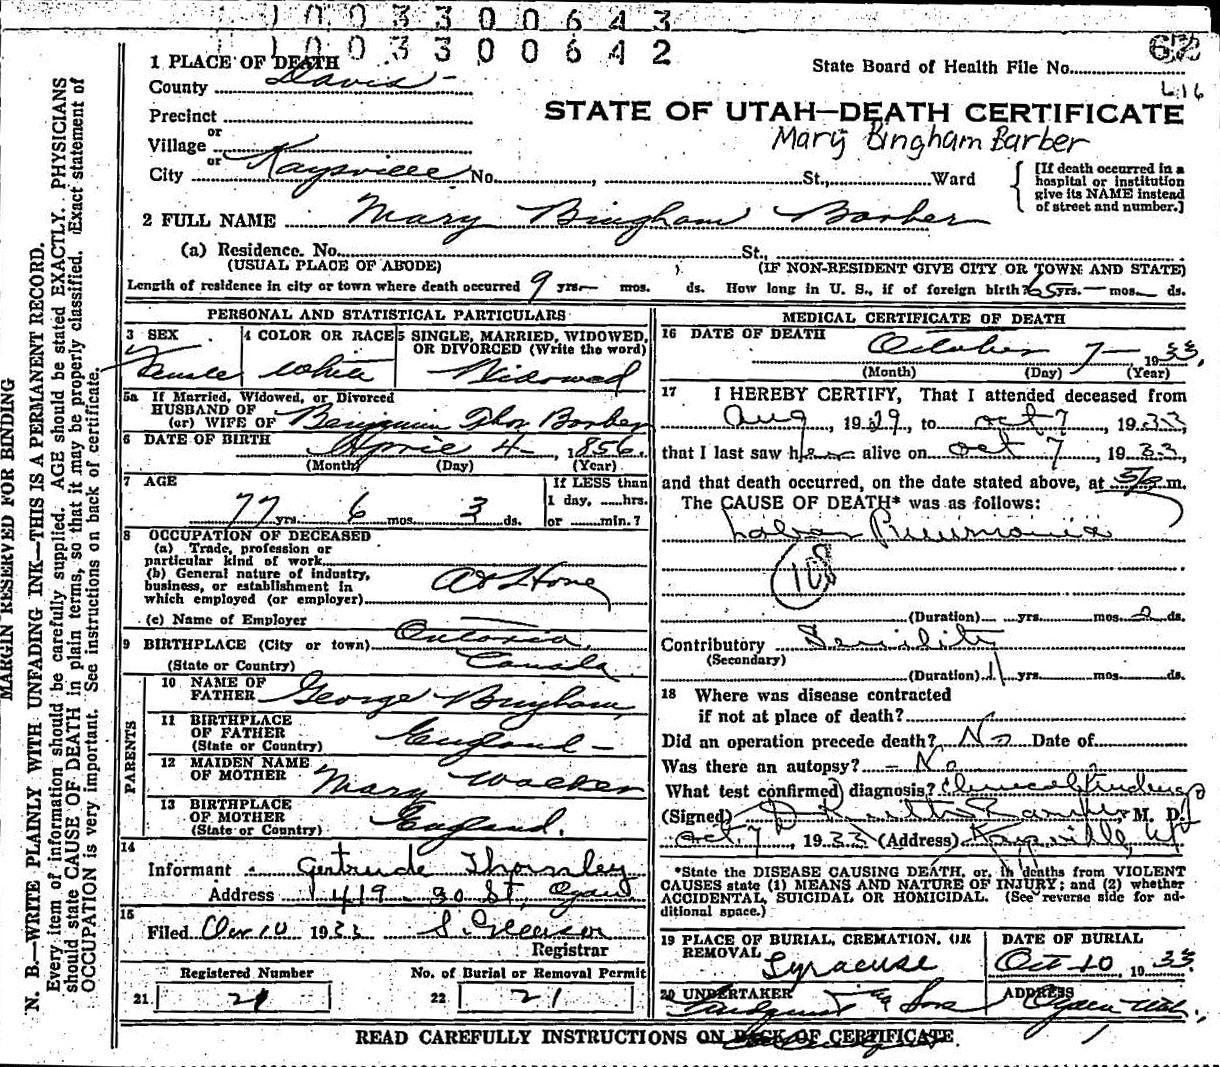 1 1 0 0 3 3 0 0 6 4 3
1 1 0 0 3 3 0 0 6 4 2
MARGIN RESERVED FOR BINDING
N. B.—WRITE PLAINLY WITH UNFADING INK—THIS IS A PERMANENT RECORD.
Every item of information should be carefully supplied. AGE should be stated EXACTLY. PHYSICIANS
should state CAUSE OF DEATH in plain terms, so that it may be properly classified. Exact statement of
OCCUPATION is very important. See instructions on back of certificate.
1 PLACE OF DEATH
County Davis
Precinct
or
Village
or
City Kaysville No. , St., Ward
State Board of Health File No.
L16
STATE OF UTAH—DEATH CERTIFICATE
Mary Bingham Barber
[If death occurred in a
hospital or institution
give its NAME instead
of street and number.]
2 FULL NAME Mary Bingham Barber
(a) Residence. No. St.,
(USUAL PLACE OF ABODE) (IF NON-RESIDENT GIVE CITY OR TOWN AND STATE)
Length of residence in city or town where death occurred 9 yrs.— mos. ds. How long in U. S., if of foreign birth? 65 yrs. — mos — ds.
PERSONAL AND STATISTICAL PARTICULARS
3 SEX
Female
4 COLOR OR RACE
White
5 SINGLE, MARRIED, WIDOWED,
OR DIVORCED (Write the word)
Widowed
5a If Married, Widowed, or Divorced
HUSBAND OF
(or) WIFE OF Benjamin Thos Barber
6 DATE OF BIRTH April 4 , 1856.
(Month) (Day) (Year)
7 AGE
77 yrs. 6 mos. 3 ds.
If LESS than
1 day, ......hrs.
or ......min.?
8 OCCUPATION OF DECEASED
(a) Trade, profession or
particular kind of work
(b) General nature of industry,
business, or establishment in
which employed (or employer) At Home
(c) Name of Employer
9 BIRTHPLACE (City or town) Ontario,
(State or Country) Canada
PARENTS
10 NAME OF
FATHER George Bingham
11 BIRTHPLACE
OF FATHER England —
(State or Country)
12 MAIDEN NAME
OF MOTHER Mary Walker
13 BIRTHPLACE
OF MOTHER England.
(State or Country)
14
Informant Gertrude Thornley
Address 419 - 30 St, Ogden
15
Filed 10 1933
Registrar
Registered Number
21 21
No. of Burial or Removal Permit
22 21
MEDICAL CERTIFICATE OF DEATH
16 DATE OF DEATH October 7 — 1933,
(Month) (Day) (Year)
17 I HEREBY CERTIFY, That I attended deceased from
Aug , 1929, to Oct 7 1933,
that I last saw her alive on Oct 7 , 1933,
and that death occurred, on the date stated above, at m.
The CAUSE OF DEATH* was as follows:
Lobar Pneumonia
108
(Duration) yrs. mos. 2 ds.
Contributory Senility
(Secondary)
(Duration) 1 yrs. mos. ds.
18 Where was disease contracted
if not at place of death?
Did an operation precede death? No Date of
Was there an autopsy? — No
What test confirmed diagnosis? Clinical findings
(Signed) M. D.
Oct. 7 , 1933 (Address) Kaysville, Ut
*State the DISEASE CAUSING DEATH, or, in deaths from VIOLENT
CAUSES state (1) MEANS AND NATURE OF INJURY; and (2) whether
ACCIDENTAL, SUICIDAL OR HOMICIDAL. (See reverse side for ad-
ditional space.)
19 PLACE OF BURIAL, CREMATION, OR
REMOVAL Syracuse
DATE OF BURIAL
Oct 10, 1933
20 UNDERTAKER
& Sons
ADDRESS
Ogden Utah.
READ CAREFULLY INSTRUCTIONS ON BACK OF CERTIFICATE.